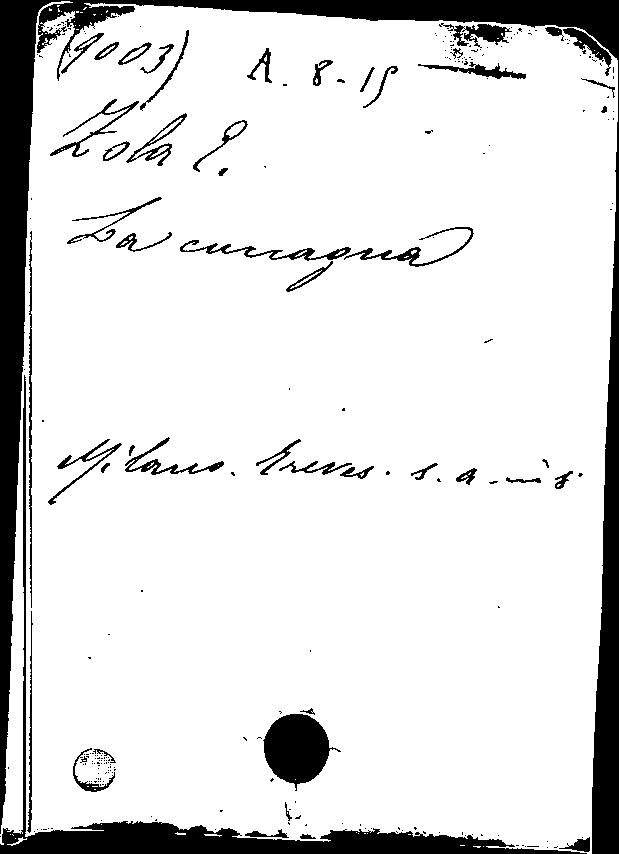 (9003) A. 8-15
Zola E.
La cuccagna
Milano. Treves. s. a. in 8.